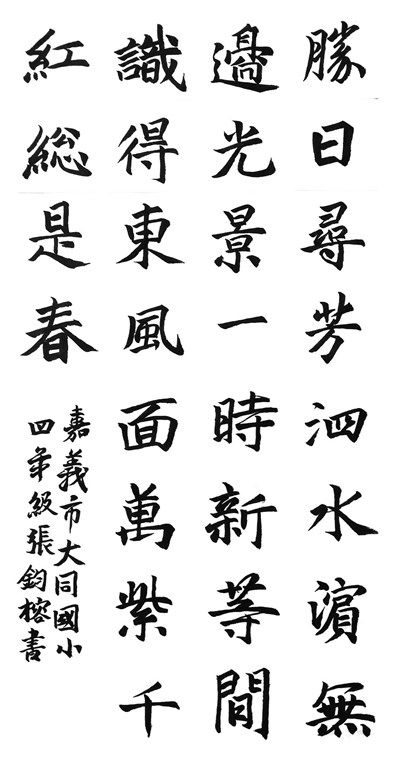 勝日尋芳泗水濱無
邊光景一時新等間
識得東風面萬紫千
紅総是春
嘉義市大同國小
四年級張鈞榕書